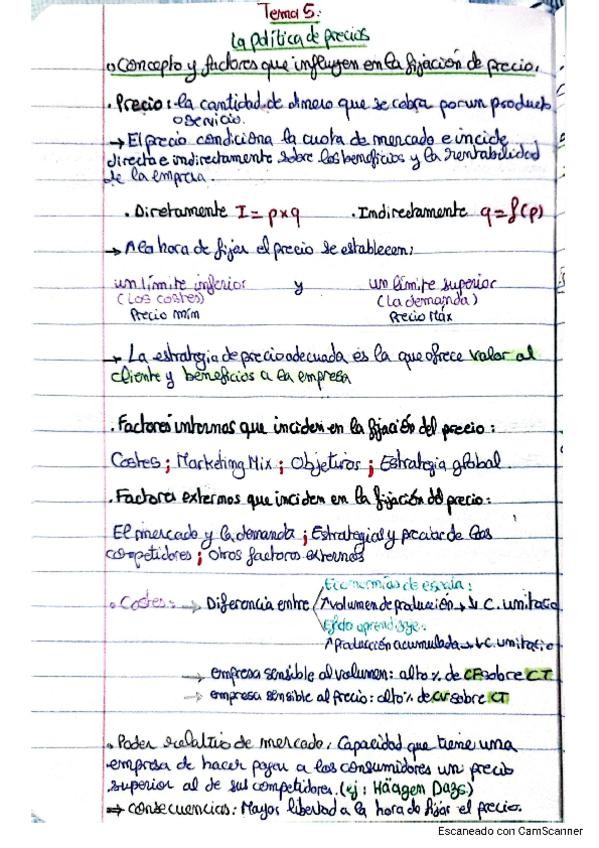 Tema 5:
La política de precios
Concepto y factores que influyen en la fijación de precio.
. Precio: la cantidad de dinero que se cobra por un producto
o servicio.
→ El precio condiciona la cuota de mercado e incide
directa e indirectamente sobre los beneficios y la rentabilidad
de la empresa.
. Diretamente I = p x q . Indirectamente q = f(p)
→ A la hora de fijar el precio se establecen:
un límite inferior y un límite superior
(Los costes) (La demanda)
Precio mín Precio Máx
→ La estrategia de precio adecuada es la que ofrece valor al
cliente y beneficios a la empresa
. Factores internos que inciden en la fijación del precio:
Costes ; Marketing Mix ; Objetivos ; Estrategia global.
. Factores externos que inciden en la fijación del precio:
El mercado y la demanda ; Estrategias y precios de los
competidores ; otros factores externos
Economías de escala:
Costes: → Diferencia entre ↑ volumen de producción → ↓ C. unitario
Efecto aprendizaje:
↑ Producción acumulada → ↓ C. unitario
→ empresa sensible al volumen: alto % de CF sobre CT
→ empresa sensible al precio: alto % de CV sobre CT
. Poder relativo de mercado. Capacidad que tiene una
empresa de hacer pagar a los consumidores un precio
superior al de sus competidores. (ej: Häagen Dazs)
⇒ consecuencias: Mayor libertad a la hora de fijar el precio.
Escaneado con CamScanner